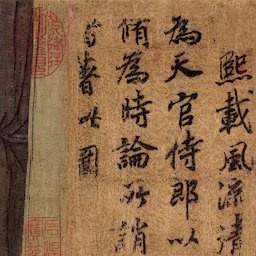 熙載風流清
為天官侍郎以
脩為時論所誚
著此圖